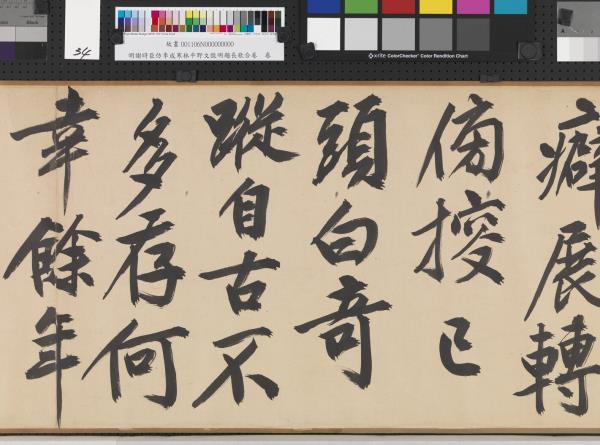 34
故畫 001106N000000000
明謝時臣仿李成寒林平野文徵明題長歌合卷 卷
x-rite ColorChecker Color Rendition Chart
癖展轉
傍搜已
頭白奇
蹤自古不
多存何
幸餘年